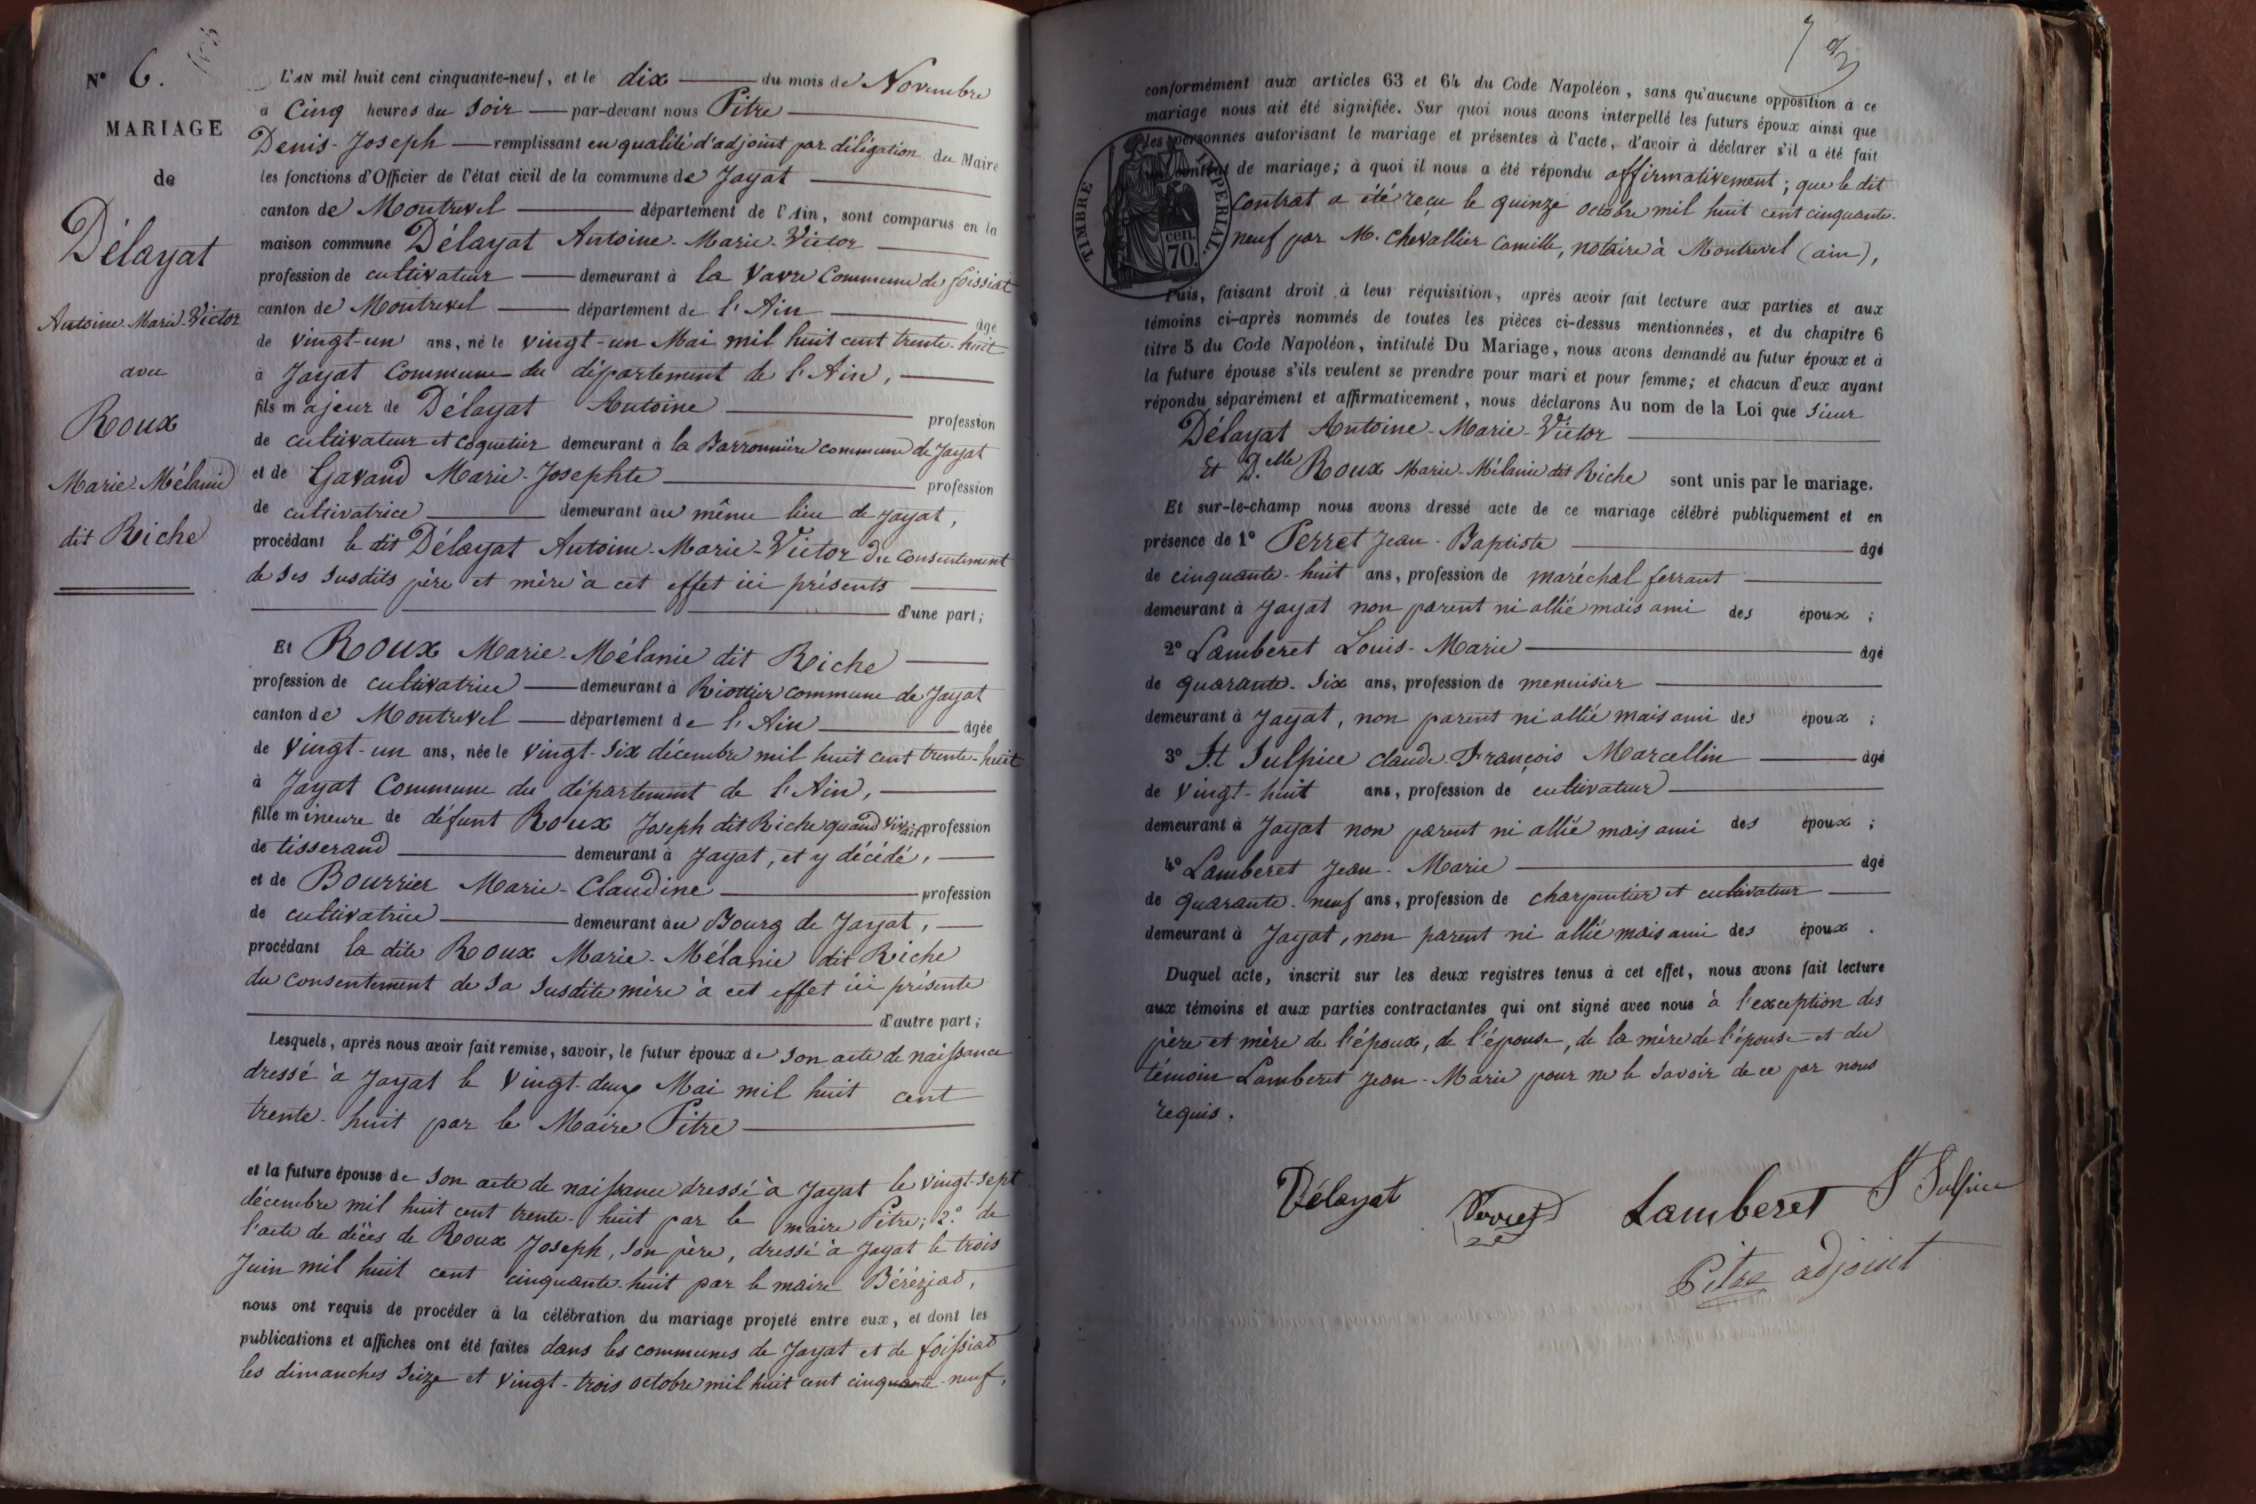 N° 6.
MARIAGE
de
Délayat
Antoine-Marie-Victor
avec
Roux
Marie-Mélanie
dit Riche
L'AN mil huit cent cinquante-neuf, et le dix du mois de Novembre
à Cinq heures du Soir par-devant nous Pitre
Denis-Joseph remplissant en qualité d'adjoint par délégation du Maire
les fonctions d'Officier de l'état civil de la commune de Jayat
canton de Montrevel département de l'Ain, sont comparus en la
maison commune Délayat Antoine-Marie-Victor
profession de cultivateur demeurant à la Vavre Commune de foissiat
canton de Montrevel département de l'Ain âgé
de vingt-un ans, né le vingt-un Mai mil huit cent trente-huit
à Jayat Commune du département de l'Ain,
fils majeur de Délayat Antoine profession
de cultivateur et coquetier demeurant à la Barronnière commune de Jayat
et de Gavand Marie-Josephte profession
de cultivatrice demeurant au même lieu de Jayat,
procédant le dit Délayat Antoine-Marie-Victor du consentement
de ses susdits père et mère à cet effet ici présents
d'une part;
Et Roux Marie-Mélanie dit Riche
profession de cultivatrice demeurant à Riottier commune de Jayat
canton de Montrevel département de l'Ain âgée
de vingt-un ans, née le vingt-six décembre mil huit cent trente-huit
à Jayat Commune du département de l'Ain,
fille mineure de défunt Roux Joseph dit Riche quand vivait profession
de tisserand demeurant à Jayat, et y décédé,
et de Bourrier Marie-Claudine profession
de cultivatrice demeurant au Bourg de Jayat,
procédant la dite Roux Marie-Mélanie dit Riche
du consentement de sa susdite mère à cet effet ici présente
d'autre part;
Lesquels, après nous avoir fait remise, savoir, le futur époux de son acte de naissance
dressé à Jayat le vingt-deux Mai mil huit cent
trente-huit par le Maire Pitre
et la future épouse de son acte de naissance dressé à Jayat le vingt-sept
décembre mil huit cent trente-huit par le maire Pitre; 2.° de
l'acte de décès de Roux Joseph, son père, dressé à Jayat le trois
Juin mil huit cent cinquante-huit par le maire Bérézjad,
nous ont requis de procéder à la célébration du mariage projeté entre eux, et dont les
publications et affiches ont été faites dans les communes de Jayat et de foissiat
les dimanches seize et vingt-trois octobre mil huit cent cinquante-neuf,
conformément aux articles 63 et 64 du Code Napoléon, sans qu'aucune opposition à ce
mariage nous ait été signifiée. Sur quoi nous avons interpellé les futurs époux ainsi que
les personnes autorisant le mariage et présentes à l'acte, d'avoir à déclarer s'il a été fait
contrat de mariage; à quoi il nous a été répondu affirmativement; que le dit
contrat a été reçu le quinze octobre mil huit cent cinquante-
neuf par M. Chevallier Camille, notaire à Montrevel (ain),
TIMBRE IMPERIAL
70 cen.
Puis, faisant droit à leur réquisition, après avoir fait lecture aux parties et aux
témoins ci-après nommés de toutes les pièces ci-dessus mentionnées, et du chapitre 6
titre 5 du Code Napoléon, intitulé Du Mariage, nous avons demandé au futur époux et à
la future épouse s'ils veulent se prendre pour mari et pour femme; et chacun d'eux ayant
répondu séparément et affirmativement, nous déclarons Au nom de la Loi que sieur
Délayat Antoine-Marie-Victor
Et D.elle Roux Marie-Mélanie dit Riche sont unis par le mariage.
Et sur-le-champ nous avons dressé acte de ce mariage célébré publiquement et en
présence de 1° Perret Jean-Baptiste âgé
de cinquante-huit ans, profession de maréchal ferrant
demeurant à Jayat non parent ni allié mais ami des époux;
2° Lamberet Louis-Marie âgé
de quarante-six ans, profession de menuisier
demeurant à Jayat, non parent ni allié mais ami des époux;
3° St Sulpice Claude-François Marcellin âgé
de vingt-huit ans, profession de cultivateur
demeurant à Jayat non parent ni allié mais ami des époux;
4° Lamberet Jean-Marie âgé
de quarante-neuf ans, profession de charpentier et cultivateur
demeurant à Jayat, non parent ni allié mais ami des époux.
Duquel acte, inscrit sur les deux registres tenus à cet effet, nous avons fait lecture
aux témoins et aux parties contractantes qui ont signé avec nous à l'exception des
père et mère de l'époux, de l'épouse, de la mère de l'épouse et du
témoin Lamberet Jean-Marie pour ne le savoir de ce par nous
requis.
Délayat Perret Lamberet St Sulpice
Pitre adjoint